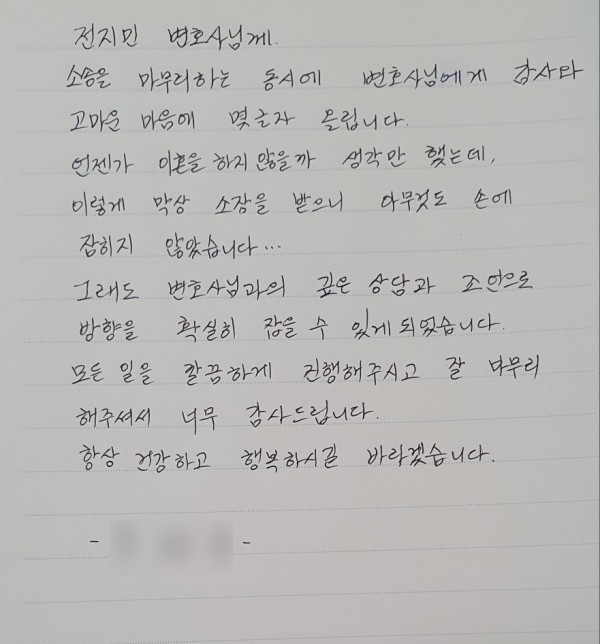 전지민 변호사님께.
소송을 마무리하는 동시에 변호사님에게 감사와
고마운 마음에 몇글자 올립니다.
언젠가 이혼을 하지 않을까 생각만 했는데,
이렇게 막상 소장을 받으니 아무것도 손에
잡히지 않았습니다...
그래도 변호사님과의 깊은 상담과 조언으로
방향을 확실히 잡을 수 있게 되었습니다.
모든 일을 깔끔하게 진행해주시고 잘 마무리
해주셔서 너무 감사드립니다.
항상 건강하고 행복하시길 바라겠습니다.
- -